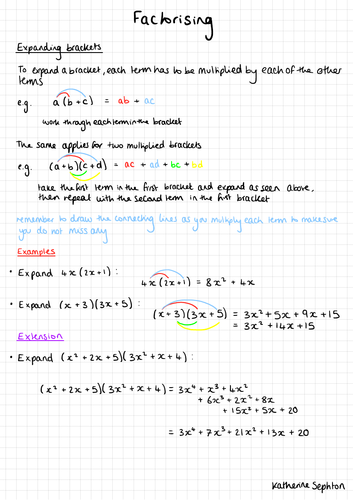 Factorising
Expanding brackets
To expand a bracket, each term has to be multiplied by each of the other
terms
e.g. a(b+c) = ab + ac
work through each term in the bracket
The same applies for two multiplied brackets
e.g. (a+b)(c+d) = ac + ad + bc + bd
take the first term in the first bracket and expand as seen above,
then repeat with the second term in the first bracket
remember to draw the connecting lines as you multiply each term to make sure
you do not miss any
Examples
• Expand 4x(2x+1): 4x(2x+1) = 8x² + 4x
• Expand (x+3)(3x+5): (x+3)(3x+5) = 3x² + 5x + 9x + 15
= 3x² + 14x + 15
Extension
• Expand (x² + 2x + 5)(3x² + x + 4):
(x² + 2x + 5)(3x² + x + 4) = 3x⁴ + x³ + 4x²
+ 6x³ + 2x² + 8x
+ 15x² + 5x + 20
= 3x⁴ + 7x³ + 21x² + 13x + 20
Katherine Sephton